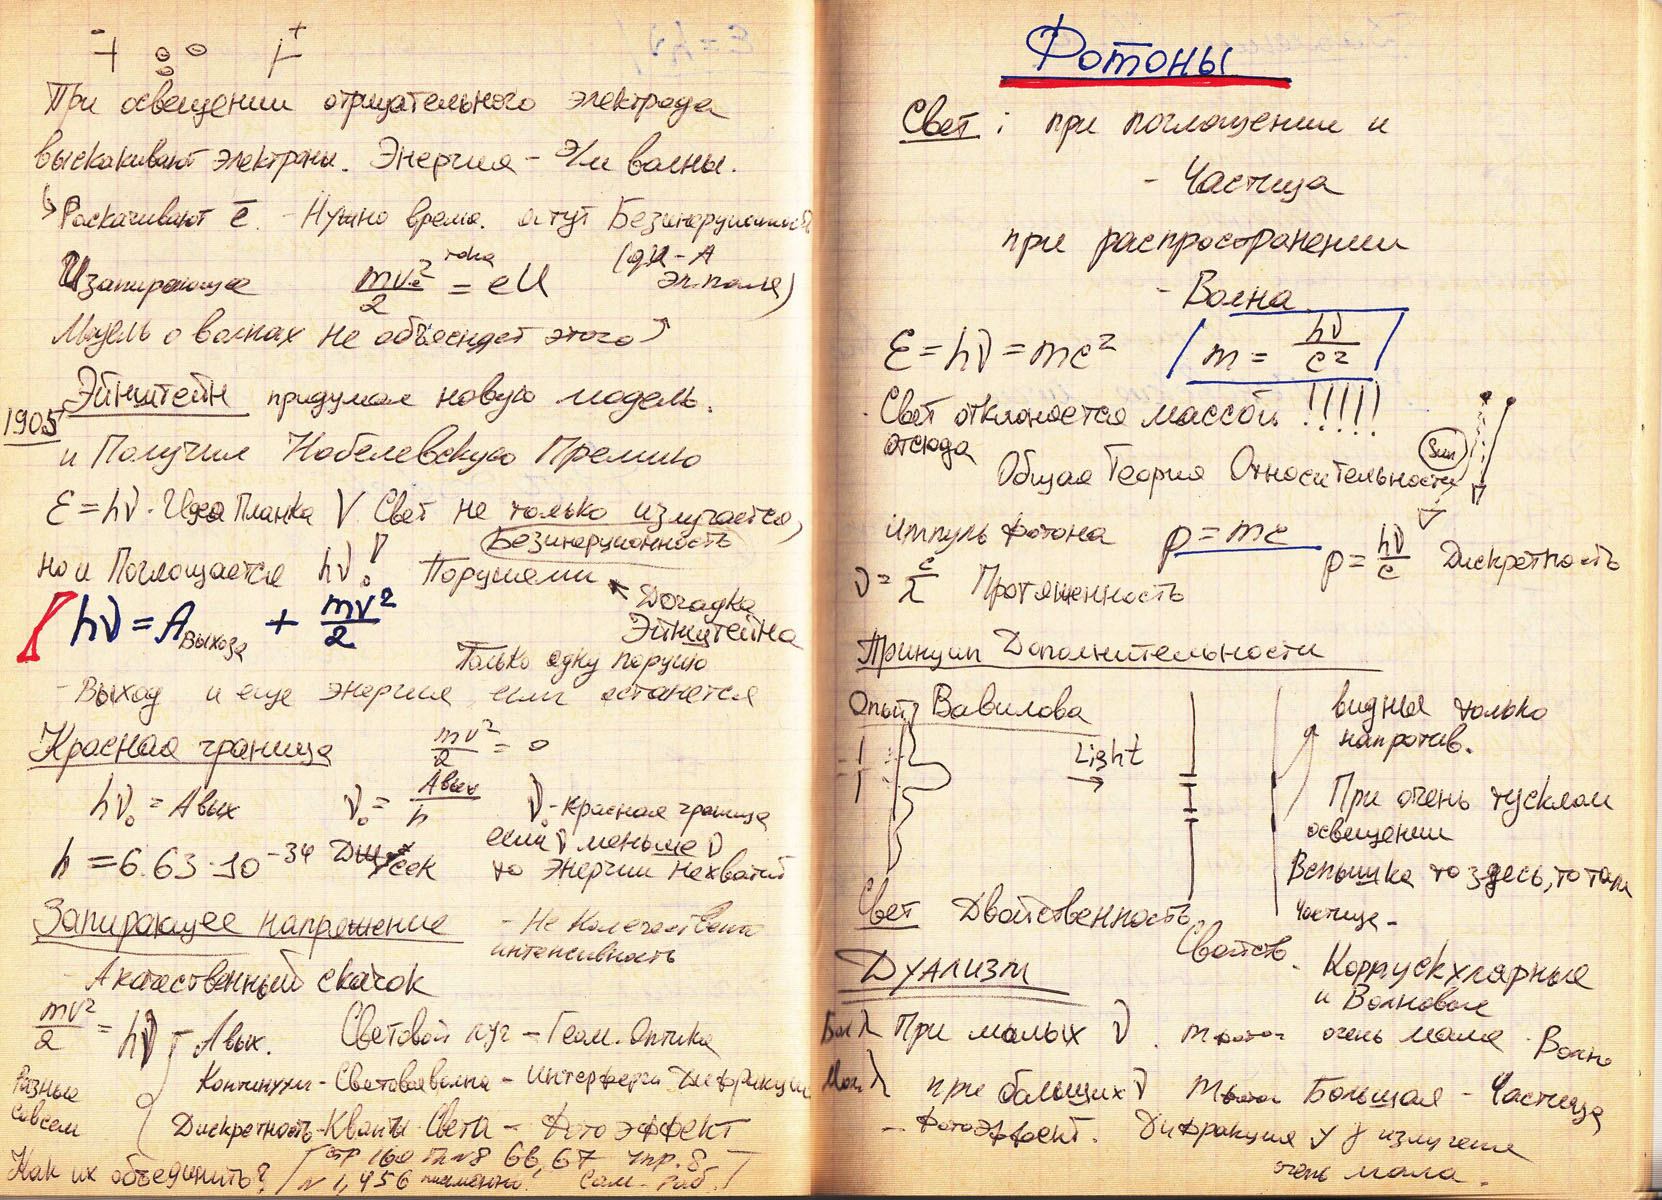 При освещении отрицательного электрода
выскакивают электроны. Энергия - Э/м волны.
Раскачивают ē. - Нужно время. а тут Безинерционность
Uзапирающее mv²/2 = eU (для - А эл. поля)
Модель о волнах не объясндет этого
1905 Эйнштейн придумал новую модель.
и Получил Нобелевскую Премию
Ɛ = hν · Идеа Планка V Свет не только излучается,
Безинерционность
но и Поглощается hν! Порциями
Догадка
Эйнштейна
hν = Aвыхода + mv²/2
Только одну порцию
- Выход и еще энергия если останется
Красная граница mv²/2 = 0
hν₀ = Авых ν₀ = Aвых/h ν₀ - красная граница
если ν меньше ν
h = 6.63·10⁻³⁴ Дж*сек то энергии нехватит
Запирающее напряжение - Не Количествена
интенсивность
А качественный скачок
mv²/2 = hν - Авых. Световой луч - Геом. Оптика
Разные Континуум - Световая волна - интерференц Дифракции
совсем Дискретность - Кванты Света - Фотоэффект
Как их объединить? стр 160 66, 67 упр. 8
N 1,456 письменно! Сам. раб.
Фотоны
Свет : при поглощении и
- Частица
при распространении
- Волна
Ɛ = hν = mc² m = hν/c²
Свет отклоняется массой. !!!!!
отсюда Sun
Общая Теория Относительности
импульс фотона p = mc p = hν/c Дискретность
ν = c/λ Протяженность
Принцип Дополнительности
Опыт Вавилова
видныя только
напротив.
Light
При очень тусклом
освещении
Вспышка то здесь, то там
частице -
Свет Двойственность
Свойств. Корпускулярные
и Волновые
Дуализм
Бол λ При малых ν. mфотон очень мала. Волна
Мал. λ при больших ν mфотон Большая - Частица
- Фотоэффент. Дифракция у γ излучения
очень мала.